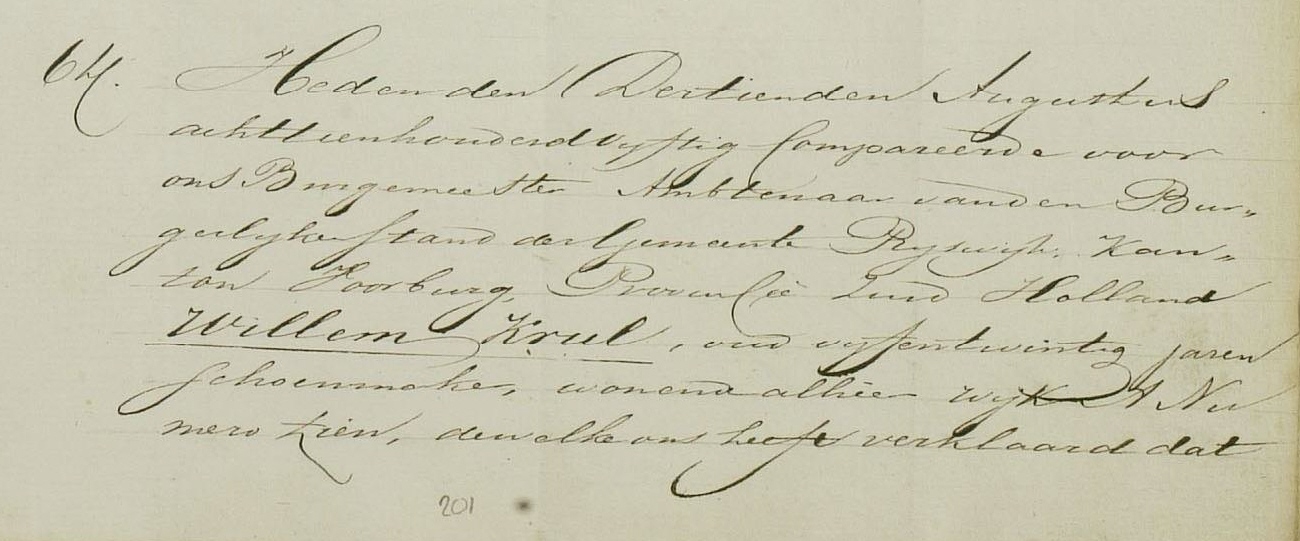 64. Heden den Dertienden Augustus
achttienhonderd vyftig Compareerde voor
ons Burgemeester Ambtenaar van den Bur„
gerlyke stand der Gemeente Ryswyk, Kan„
ton Voorburg, Provincie Zuid Holland
Willem Kriel, oud vyfentwintig jaren
Schoenmaker, wonende alhier wyk A Nu
mero tien, dewelke ons heeft verklaard dat
201